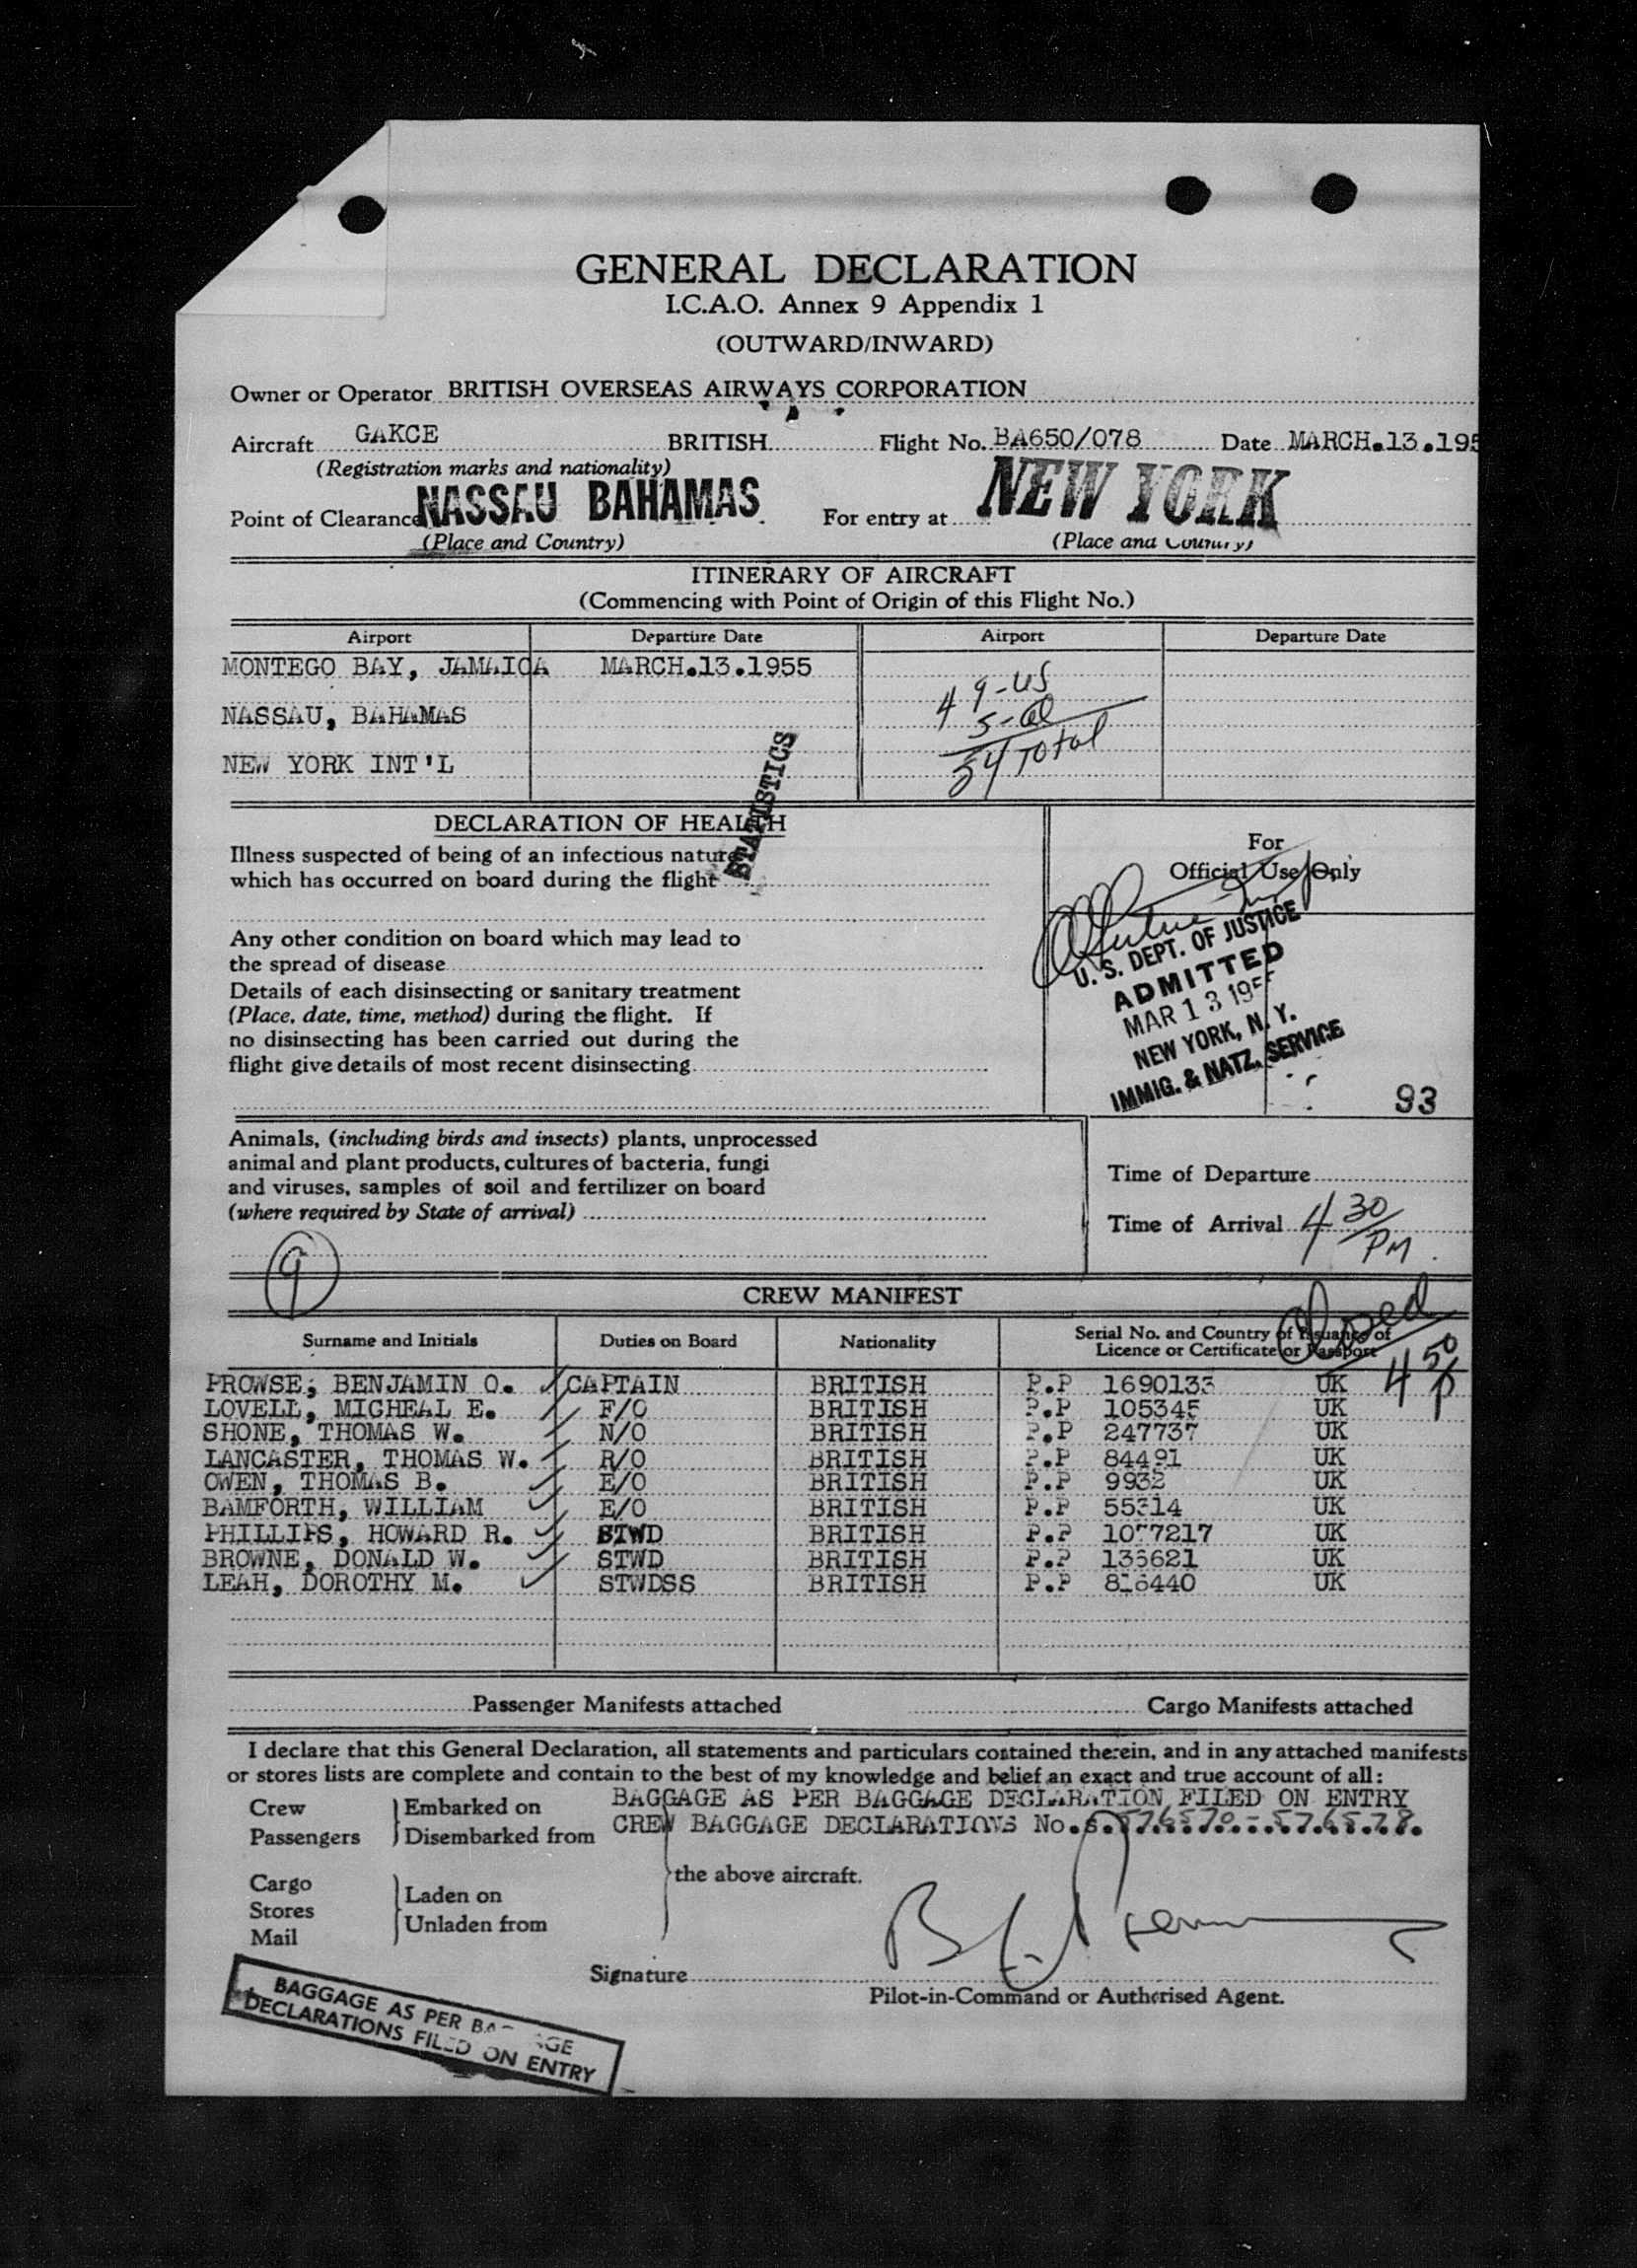 GENERAL DECLARATION
I.C.A.O. Annex 9 Appendix 1
(OUTWARD/INWARD)
Owner or Operator BRITISH OVERSEAS AIRWAYS CORPORATION
Aircraft GAKCE BRITISH Flight No. BA650/078 Date MARCH.13.195
(Registration marks and nationality)
Point of Clearance NASSAU BAHAMAS For entry at NEW YORK
(Place and Country) (Place and Country)
ITINERARY OF AIRCRAFT
(Commencing with Point of Origin of this Flight No.)
Airport Departure Date Airport Departure Date
MONTEGO BAY, JAMAICA MARCH.13.1955
49-US
NASSAU, BAHAMAS
5-al
54 Total
NEW YORK INT'L
STATISTICS
DECLARATION OF HEALTH
Illness suspected of being of an infectious nature
which has occurred on board during the flight
Any other condition on board which may lead to
the spread of disease
Details of each disinsecting or sanitary treatment
(Place, date, time, method) during the flight. If
no disinsecting has been carried out during the
flight give details of most recent disinsecting
For
Official Use Only
U. S. DEPT. OF JUSTICE
ADMITTED
MAR 13 195
NEW YORK, N. Y.
IMMIG. & NATZ. SERVICE
93
Animals, (including birds and insects) plants, unprocessed
animal and plant products, cultures of bacteria, fungi
and viruses, samples of soil and fertilizer on board
(where required by State of arrival)
Time of Departure
Time of Arrival 4 30 PM
9
CREW MANIFEST
Surname and Initials Duties on Board Nationality Serial No. and Country of Issuance of
Licence or Certificate or Passport
4 50 P
PROWSE, BENJAMIN O. CAPTAIN BRITISH P.P 1690133 UK
LOVELL, MICHEAL E. F/O BRITISH P.P 105345 UK
SHONE, THOMAS W. N/O BRITISH P.P 247737 UK
LANCASTER, THOMAS W. R/O BRITISH P.P 84491 UK
OWEN, THOMAS B. E/O BRITISH P.P 9932 UK
BAMFORTH, WILLIAM E/O BRITISH P.P 55314 UK
PHILLIPS, HOWARD R. STWD BRITISH P.P 1077217 UK
BROWNE, DONALD W. STWD BRITISH P.P UK
LEAH, DOROTHY M. STWDSS BRITISH P.P UK
Passenger Manifests attached Cargo Manifests attached
I declare that this General Declaration, all statements and particulars contained therein, and in any attached manifests
or stores lists are complete and contain to the best of my knowledge and belief an exact and true account of all:
Crew Embarked on BAGGAGE AS PER BAGGAGE DECLARATION FILED ON ENTRY
Passengers Disembarked from CREW BAGGAGE DECLARATIONS No.s. 576570--576578.
the above aircraft.
Cargo
Stores Laden on
Mail Unladen from
Signature
Pilot-in-Command or Authorised Agent.
BAGGAGE AS PER BAGGAGE
DECLARATIONS FILED ON ENTRY